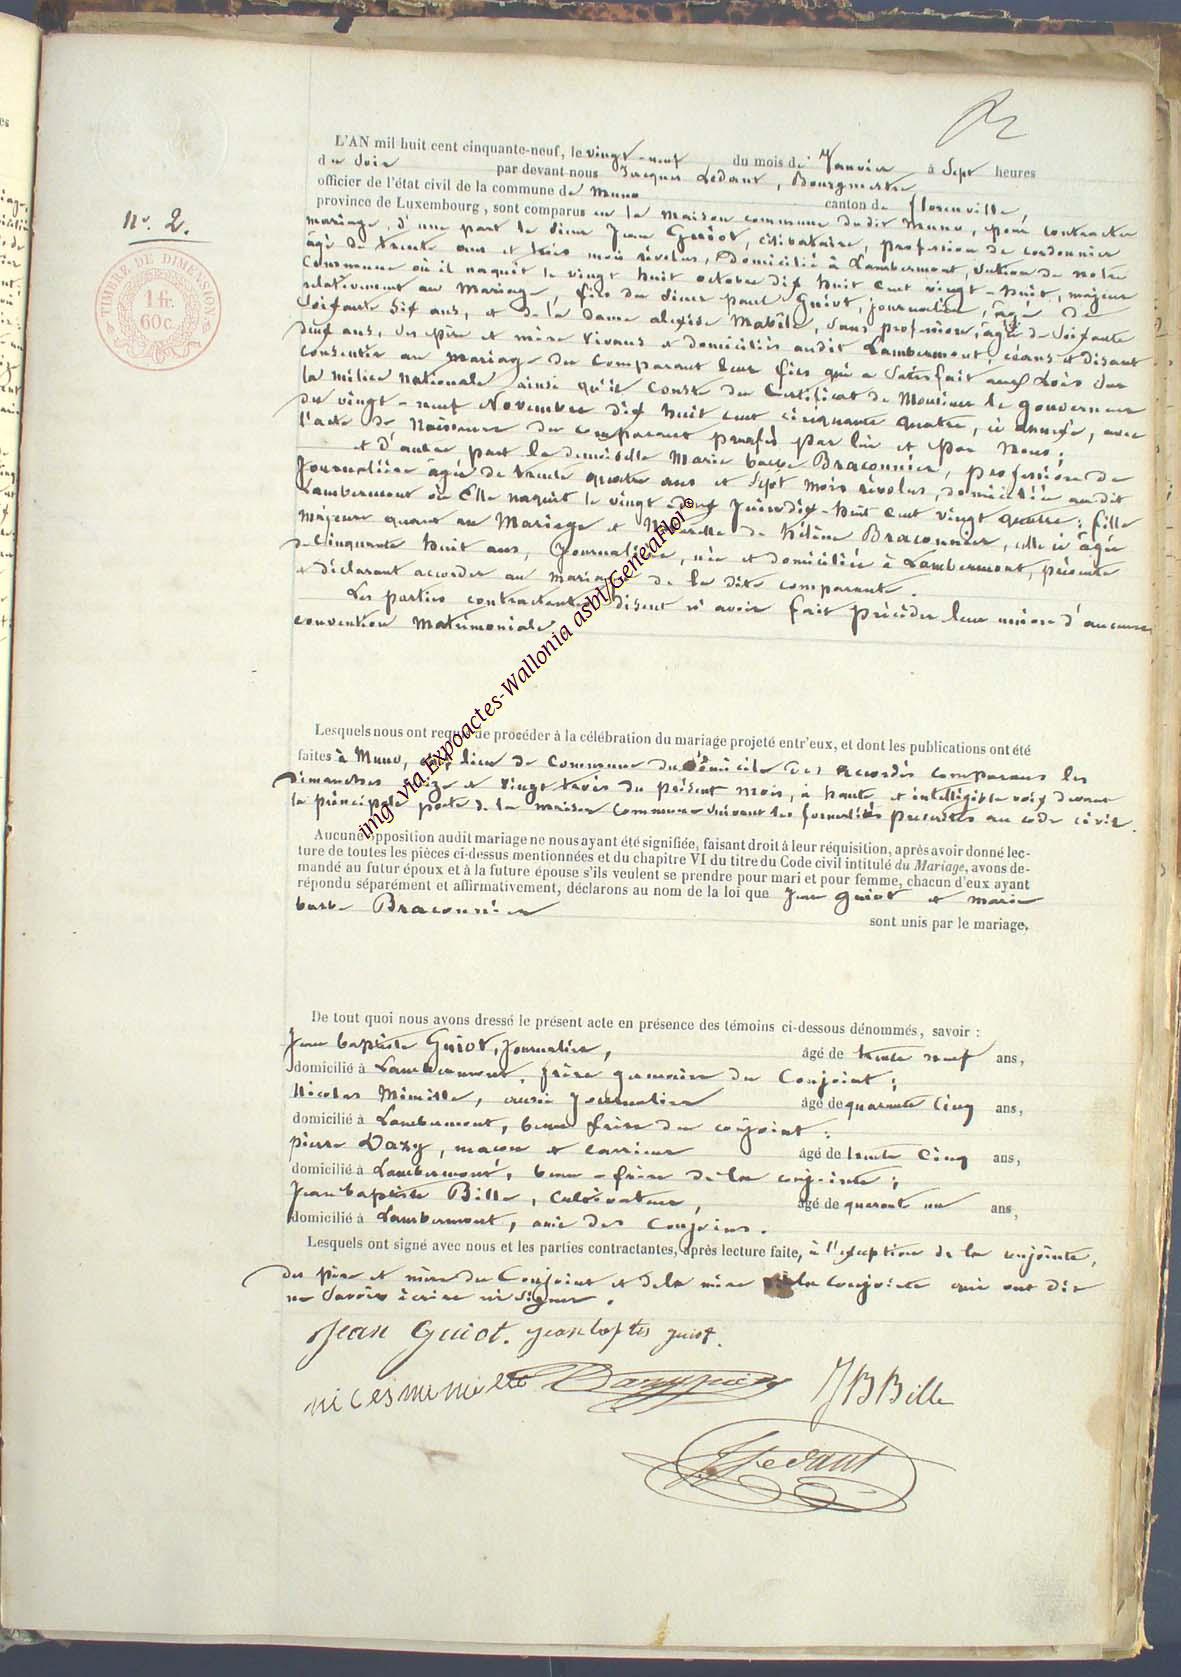 N° 2.
TIMBRE DE DIMENSION
1 fr.
60 c.
L'AN mil huit cent cinquante-neuf, le vingt-neuf du mois de Janvier à Sept heures
du Soir par devant nous Jacques Ledant, Bourgmestre
officier de l'état civil de la commune de Muno canton de florenville,
province de Luxembourg, sont comparus en la maison commune dudit Muno, pour contracter
mariage, d'une part le sieur Jean Guiot, célibataire, profession de cordonnier
âgé de trente ans et trois mois révolus, Domicilié à Lambermont, section de notre
Commune où il naquit le vingt huit octobre dix huit cent vingt-huit, majeur
relativement au Mariage, fils du sieur paul Guiot, journalier, âgé de
Soixante six ans, et de la Dame Mabile, Sans profession, âgée de Soixante
deux ans, Ses père et mère vivans et domiciliés audit Lambermont, céans et disant
consentir au mariage du comparant leur fils qui a Satisfait aux Lois sur
la milice nationale ainsi qu'il conste du Certificat de Monsieur le gouverneur
du vingt-neuf Novembre dix huit cent cinquante quatre, ci annexé, avec
l'acte de Naissance du comparant paraphés par lui et par Nous;
et d'autre part la demoiselle Marie barbe Braconnier, profession de
Journalière âgée de trente quatre ans et Sept mois révolus, domiciliée audit
Lambermont où Elle naquit le vingt deux Juin dix-huit cent vingt quatre; fille
Majeure quant au Mariage et Naturelle de hélène Braconnier, celle ci âgée
de Cinquante huit ans, Journalière, née et domiciliée à Lambermont, présente
et déclarant accorder au mariage de la dite comparante.
Les parties contractantes disent n'avoir fait précéder leur union d'aucune
convention Matrimoniale
Lesquels nous ont requis de procéder à la célébration du mariage projeté entr'eux, et dont les publications ont été
faites à Muno, lieu de Commune du Domicile des accordés comparans les
dimanches seize et vingt trois du présent mois, à haute et intelligible voix devant
la principale porte de la maison commune suivant les formalités prescrites au code civil.
Aucune opposition audit mariage ne nous ayant été signifiée, faisant droit à leur réquisition, après avoir donné lec-
ture de toutes les pièces ci-dessus mentionnées et du chapitre VI du titre du Code civil intitulé du Mariage, avons de-
mandé au futur époux et à la future épouse s'ils veulent se prendre pour mari et pour femme, chacun d'eux ayant
répondu séparément et affirmativement, déclarons au nom de la loi que Jean Guiot et marie
barbe Braconnier
sont unis par le mariage,
De tout quoi nous avons dressé le présent acte en présence des témoins ci-dessous dénommés, savoir :
Jean baptiste Guiot, Journalier, âgé de trente neuf ans,
domicilié à Lambermont, frère germain du Conjoint;
Nicolas Mimille, aussi Journalier âgé de quarante Cinq ans,
domicilié à Lambermont, beau frère du conjoint;
pierre Dazy, maçon et carrier âgé de trente Cinq ans,
domicilié à Lambermont, beau-frère de la conjointe;
Jean baptiste Bille, Cultivateur, âgé de quarant un ans,
domicilié à Lambermont, ami des Conjoins.
Lesquels ont signé avec nous et les parties contractantes, après lecture faite, à l'exception de la conjointe,
des père et mère du Conjoint et de la mère de la conjointe qui ont dit
ne Savoir écrire ni Signer.
Jean Guiot. jean baptis guiot.
JB Bille
Ledant
img. via Expoactes-Wallonia asbl/GeneaFlor©